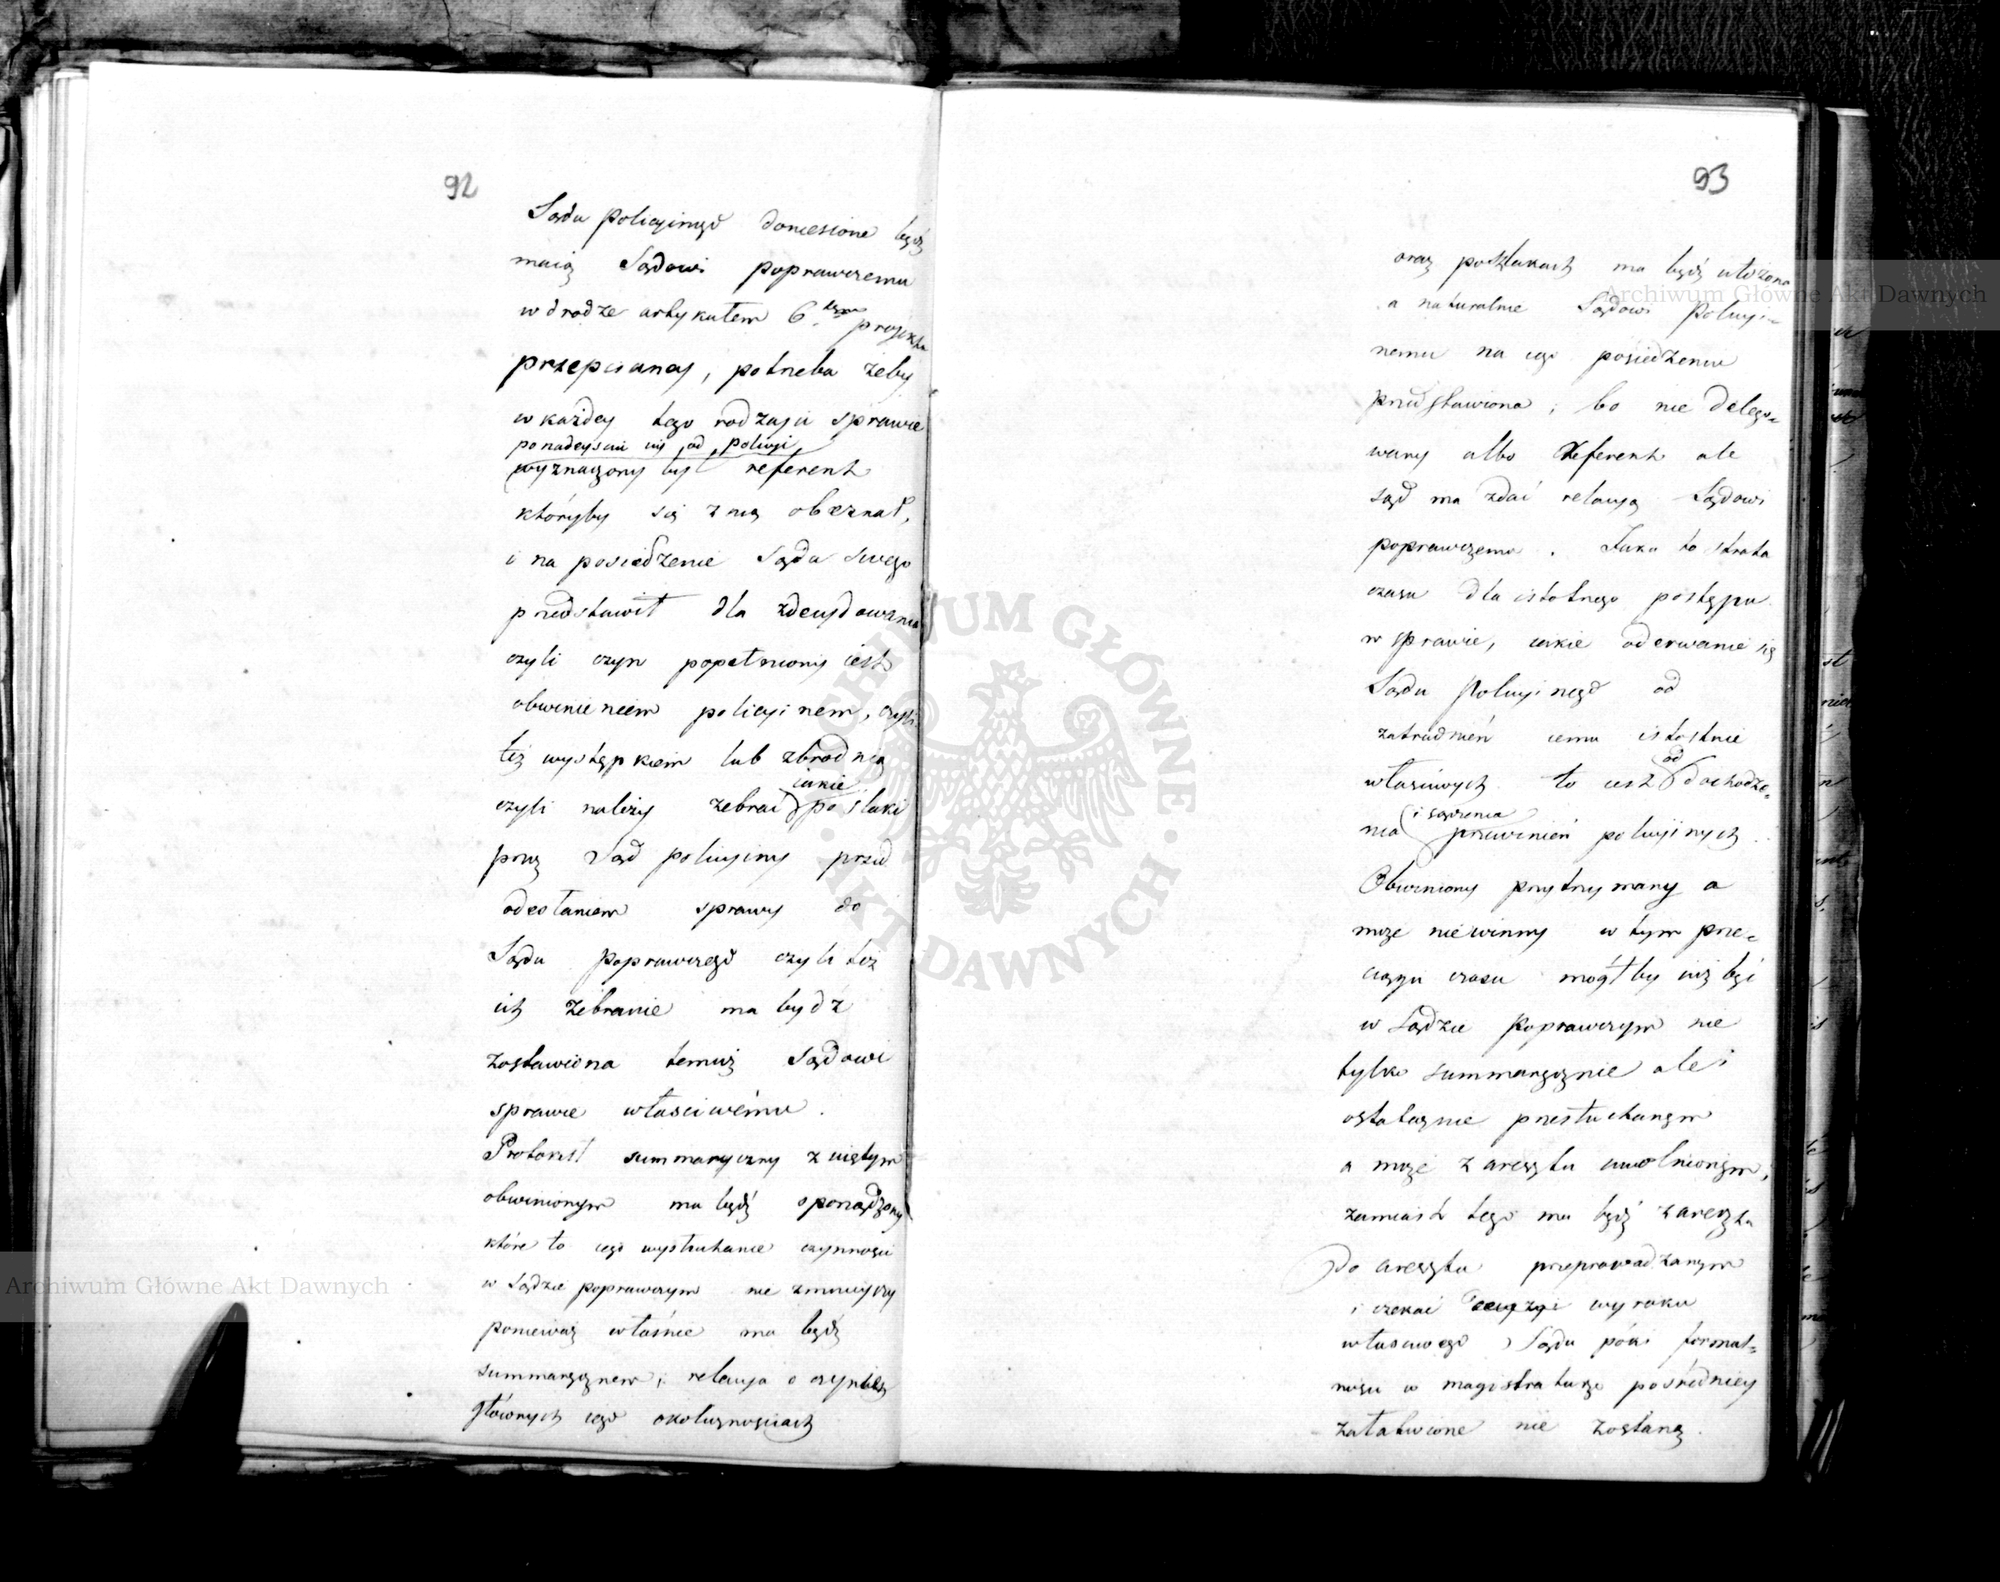 92
Sądu policyinego doniesione bydź
maią Sądowi poprawczemu
w drodze artykułem 6.tym projektu
przepisaney, potrzeba żeby
w każdey tego rodzaju sprawie
po nadeyściu iey od Policyi
wyznaczony był referent
któryby się z nią obeznał,
i na posiedzenie Sądu swego
przedstawił dla zdecydowania
czyli czyn popełniony iest
obwinieniem policyinem, czyli
też występkiem lub zbrodnią
iakie
czyli należy zebrać poszlaki
przez Sąd policyiny przed
odesłaniem sprawy do
Sądu poprawczego czyli też
ich zebranie ma bydź
zostawiona temuż Sądowi
sprawie właściwému.
Protokół summaryczny z uiętym
obwinionym ma bydź sporządzony
które to iego wysłuchanie czynności
w Sądzie poprawczym nie zmnieyszy
ponieważ właśnie ma bydź
summarycznem; relacya o czynie
głównych iego okolicznościach
93
oraz poszlakach ma bydź ułożona
a naturalnie Sądowi Policyi=
nemu na iego posiedzeniu
przedstawiona; bo nie delego=
wany albo Referent ale
sąd ma zdać relacyą Sądowi
poprawczemu. Jaka to strata
czasu dla istotnego postępu
w sprawie, iakie oderwanie się
Sądu Policyinego od
zatrudnień iemu istotnie
od
właściwych to iest dochodze=
i sądzenia
nia przewinień policyinych.
Obwiniony przytrzymany a
może niewinny w tym prze=
ciągu czasu mógłby iuż być
w Sądzie Poprawczym nie
tylko summarycznie ale i
ostatecznie przesłuchanym
a może z aresztu uwolnionym,
zamiast tego ma bydź z aresztu
do aresztu przeprowadzanym
i czekać wyroku
właściwego Sądu póki formal=
ności w magistraturze pośredniey
załatwione nie zostaną.
Archiwum Główne Akt Dawnych
Archiwum Główne Akt Dawnych
ARCHIWUM GŁÓWNE AKT DAWNYCH